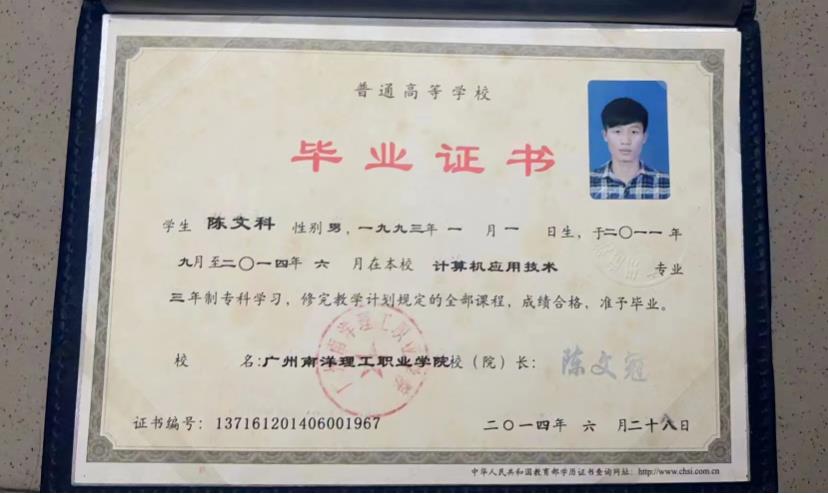 普通高等学校
毕业证书
学生 陈文科 性别 男，一九九三年 一 月 一 日生，于二〇一一 年
九月至二〇一四年 六 月在本校 计算机应用技术 专业
三年制专科学习，修完教学计划规定的全部课程，成绩合格，准予毕业。
校 名：广州南洋理工职业学院 校（院）长： 陈文冠
广州南洋理工职业学院
证书编号：137161201406001967 二〇一四年 六 月二十八日
中华人民共和国教育部学历证书查询网址：http://www.chsi.com.cn